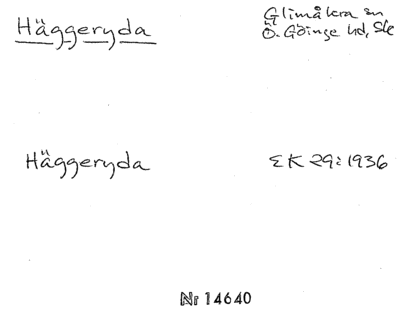 Häggeryda
Glimåkra sn
Ö. Göinge hd, Sk
Häggeryda
EK 29:1936
Nr 14640